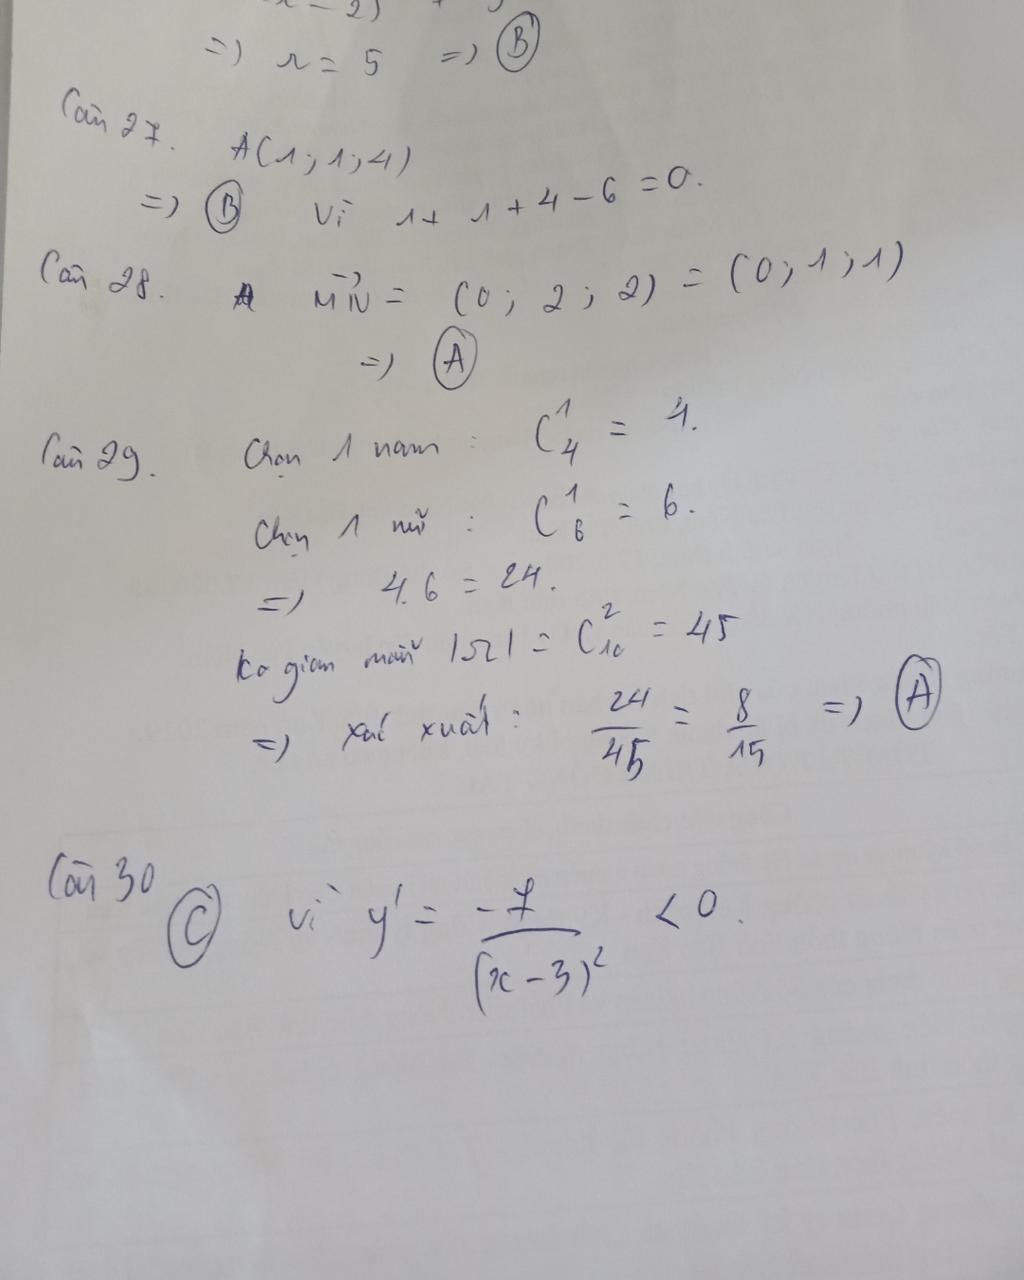 x - 2)
=> r = 5 => B
Câu 27. A(1; 1; 4)
=> B vì 1 + 1 + 4 - 6 = 0.
Câu 28. MN = (0; 2; 2) = (0; 1; 1)
=> A
Câu 29. Chọn 1 nam : C¹₄ = 4.
Chọn 1 nữ : C¹₆ = 6.
=> 4.6 = 24.
ko gian mẫu |Ω| = C²₁₀ = 45
=> xác xuất : 24/45 = 8/15 => A
Câu 30
C vì y' = -7/(x - 3)² < 0.